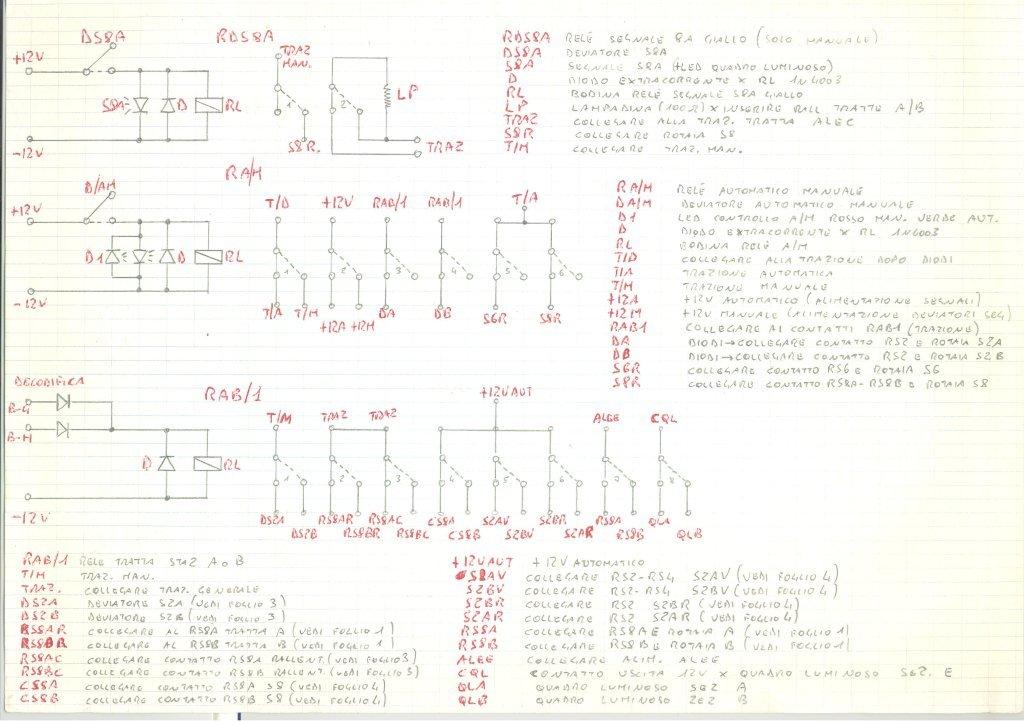 DS8A RDS8A
+12V
S8A D RL
-12V
TRAZ
MAN.
1 2
LP
S8R.
TRAZ
RDS8A RELÈ SEGNALE 8A GIALLO (SOLO MANUALE)
DS8A DEVIATORE S8A
S8A SEGNALE S8A (+LED QUADRO LUMINOSO)
D DIODO EXTRACORRENTE X RL 1N4003
RL BOBINA RELÈ SEGNALE S8A GIALLO
LP LAMPADINA (100Ω) X INSERIRE RALL TRATTE A/B
TRAZ COLLEGARE ALLA TRAZ. TRATTA ALEC
S8R COLLEGARE ROTAIA S8
T/M COLLEGARE TRAZ. MAN.
RA/M
D/AM
+12V
D1 D RL
-12V
T/D +12V RAB/1 RAB/1 T/A
1 2 3 4 5 6
T/A T/M +12A +12M DA DB S6R S8R
RA/M RELÈ AUTOMATICO MANUALE
DA/M DEVIATORE AUTOMATICO MANUALE
D1 LED CONTROLLO A/M ROSSO MAN. VERDE AUT.
D DIODO EXTRACORRENTE X RL 1N4003
RL BOBINA RELÈ A/M
T/D COLLEGARE ALLA TRAZIONE DOPO DIODI
T/A TRAZIONE AUTOMATICA
T/M TRAZIONE MANUALE
+12A +12V AUTOMATICO (ALIMENTAZIONE SEGNALI)
+12M +12V MANUALE (ALIMENTAZIONE DEVIATORI SEG)
RAB1 COLLEGARE AI CONTATTI RAB1 (TRAZIONE)
DA DIODI→COLLEGARE CONTATTO RS2 E ROTAIA S2A
DB DIODI→COLLEGARE CONTATTO RS2 E ROTAIA S2B
S6R COLLEGARE CONTATTO RS6 E ROTAIA S6
S8R COLLEGARE CONTATTO RS8A-RS8B E ROTAIA S8
DECODIFICA
B-G
B-H
D RL
-12V
RAB/1
T/M TRAZ TRAZ +12VAUT ALEE CQL
1 2 3 4 5 6 7 8
DS2A RS8AR RS8AC CS8A S2AV S2BR RS8A QLA
DS2B RS8BR RS8BC CS8B S2BV S2AR RS8B QLB
RAB/1 RELÈ TRATTA STAZ A o B
T/M TRAZ. MAN.
TRAZ. COLLEGARE TRAZ. GENERALE
DS2A DEVIATORE S2A (VEDI FOGLIO 3)
DS2B DEVIATORE S2B (VEDI FOGLIO 3)
RS8AR COLLEGARE AL RS8A TRATTA A (VEDI FOGLIO 1)
RS8BR COLLEGARE AL RS8B TRATTA B (VEDI FOGLIO 1)
RS8AC COLLEGARE CONTATTO RS8A RALLENT. (VEDI FOGLIO 3)
RS8BC COLLEGARE CONTATTO RS8B RALLENT. (VEDI FOGLIO 3)
CS8A COLLEGARE CONTATTO RS8A S8 (VEDI FOGLIO 4)
CS8B COLLEGARE CONTATTO RS8B S8 (VEDI FOGLIO 4)
+12VAUT +12V AUTOMATICO
S2AV COLLEGARE RS2-RS4 S2AV (VEDI FOGLIO 4)
S2BV COLLEGARE RS2-RS4 S2BV (VEDI FOGLIO 4)
S2BR COLLEGARE RS2 S2BR (VEDI FOGLIO 4)
S2AR COLLEGARE RS2 S2AR (VEDI FOGLIO 4)
RS8A COLLEGARE RS8A E ROTAIA A (VEDI FOGLIO 1)
RS8B COLLEGARE RS8B E ROTAIA B (VEDI FOGLIO 1)
ALEE COLLEGARE ALIM. ALEE
CQL CONTATTO USCITA 12V X QUADRO LUMINOSO SEZ. E
QLA QUADRO LUMINOSO SEZ A
QLB QUADRO LUMINOSO SEZ B